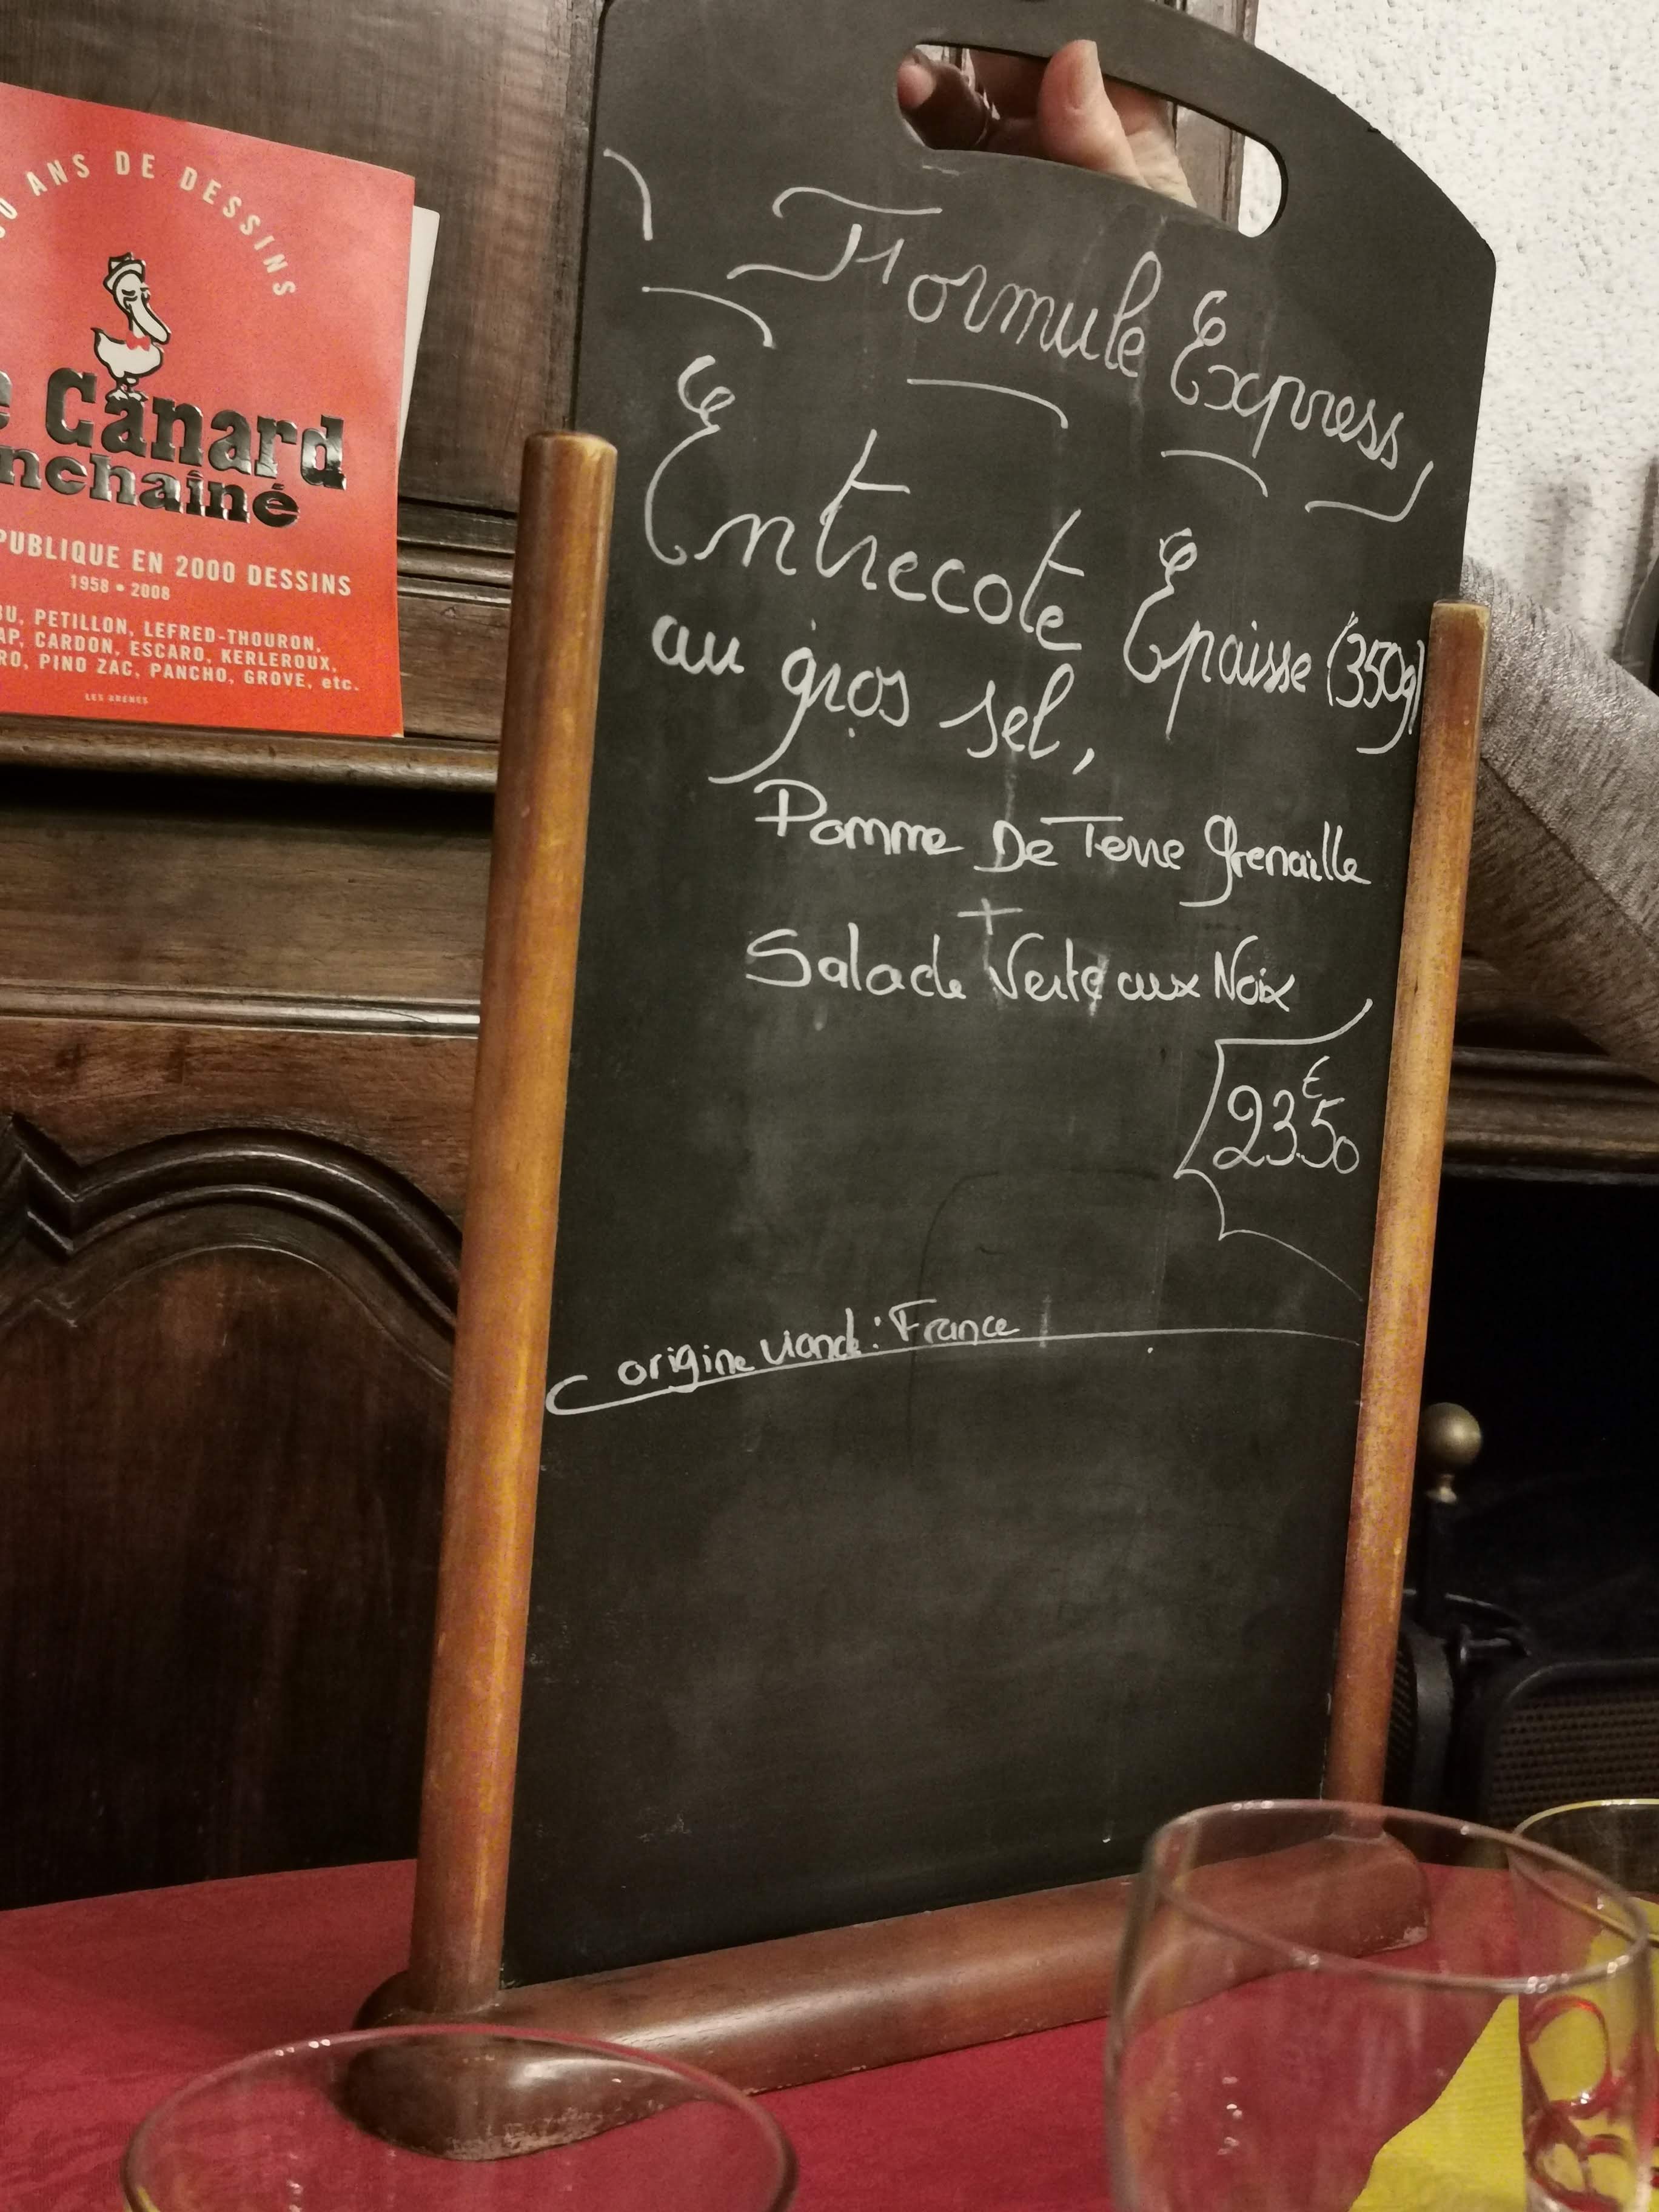 ANS DE DESSINS
Canard
nchaîné
PUBLIQUE EN 2000 DESSINS
1958 • 2008
BU, PETILLON, LEFRED-THOURON,
AP, CARDON, ESCARO, KERLEROUX,
RO, PINO ZAC, PANCHO, GROVE, etc.
LES ARÈNES
Formule Express
Entrecote Epaisse (350g)
au gros sel,
Pomme De Terre Grenaille
+
Salade Verte aux Noix
23.€50
origine viande : France